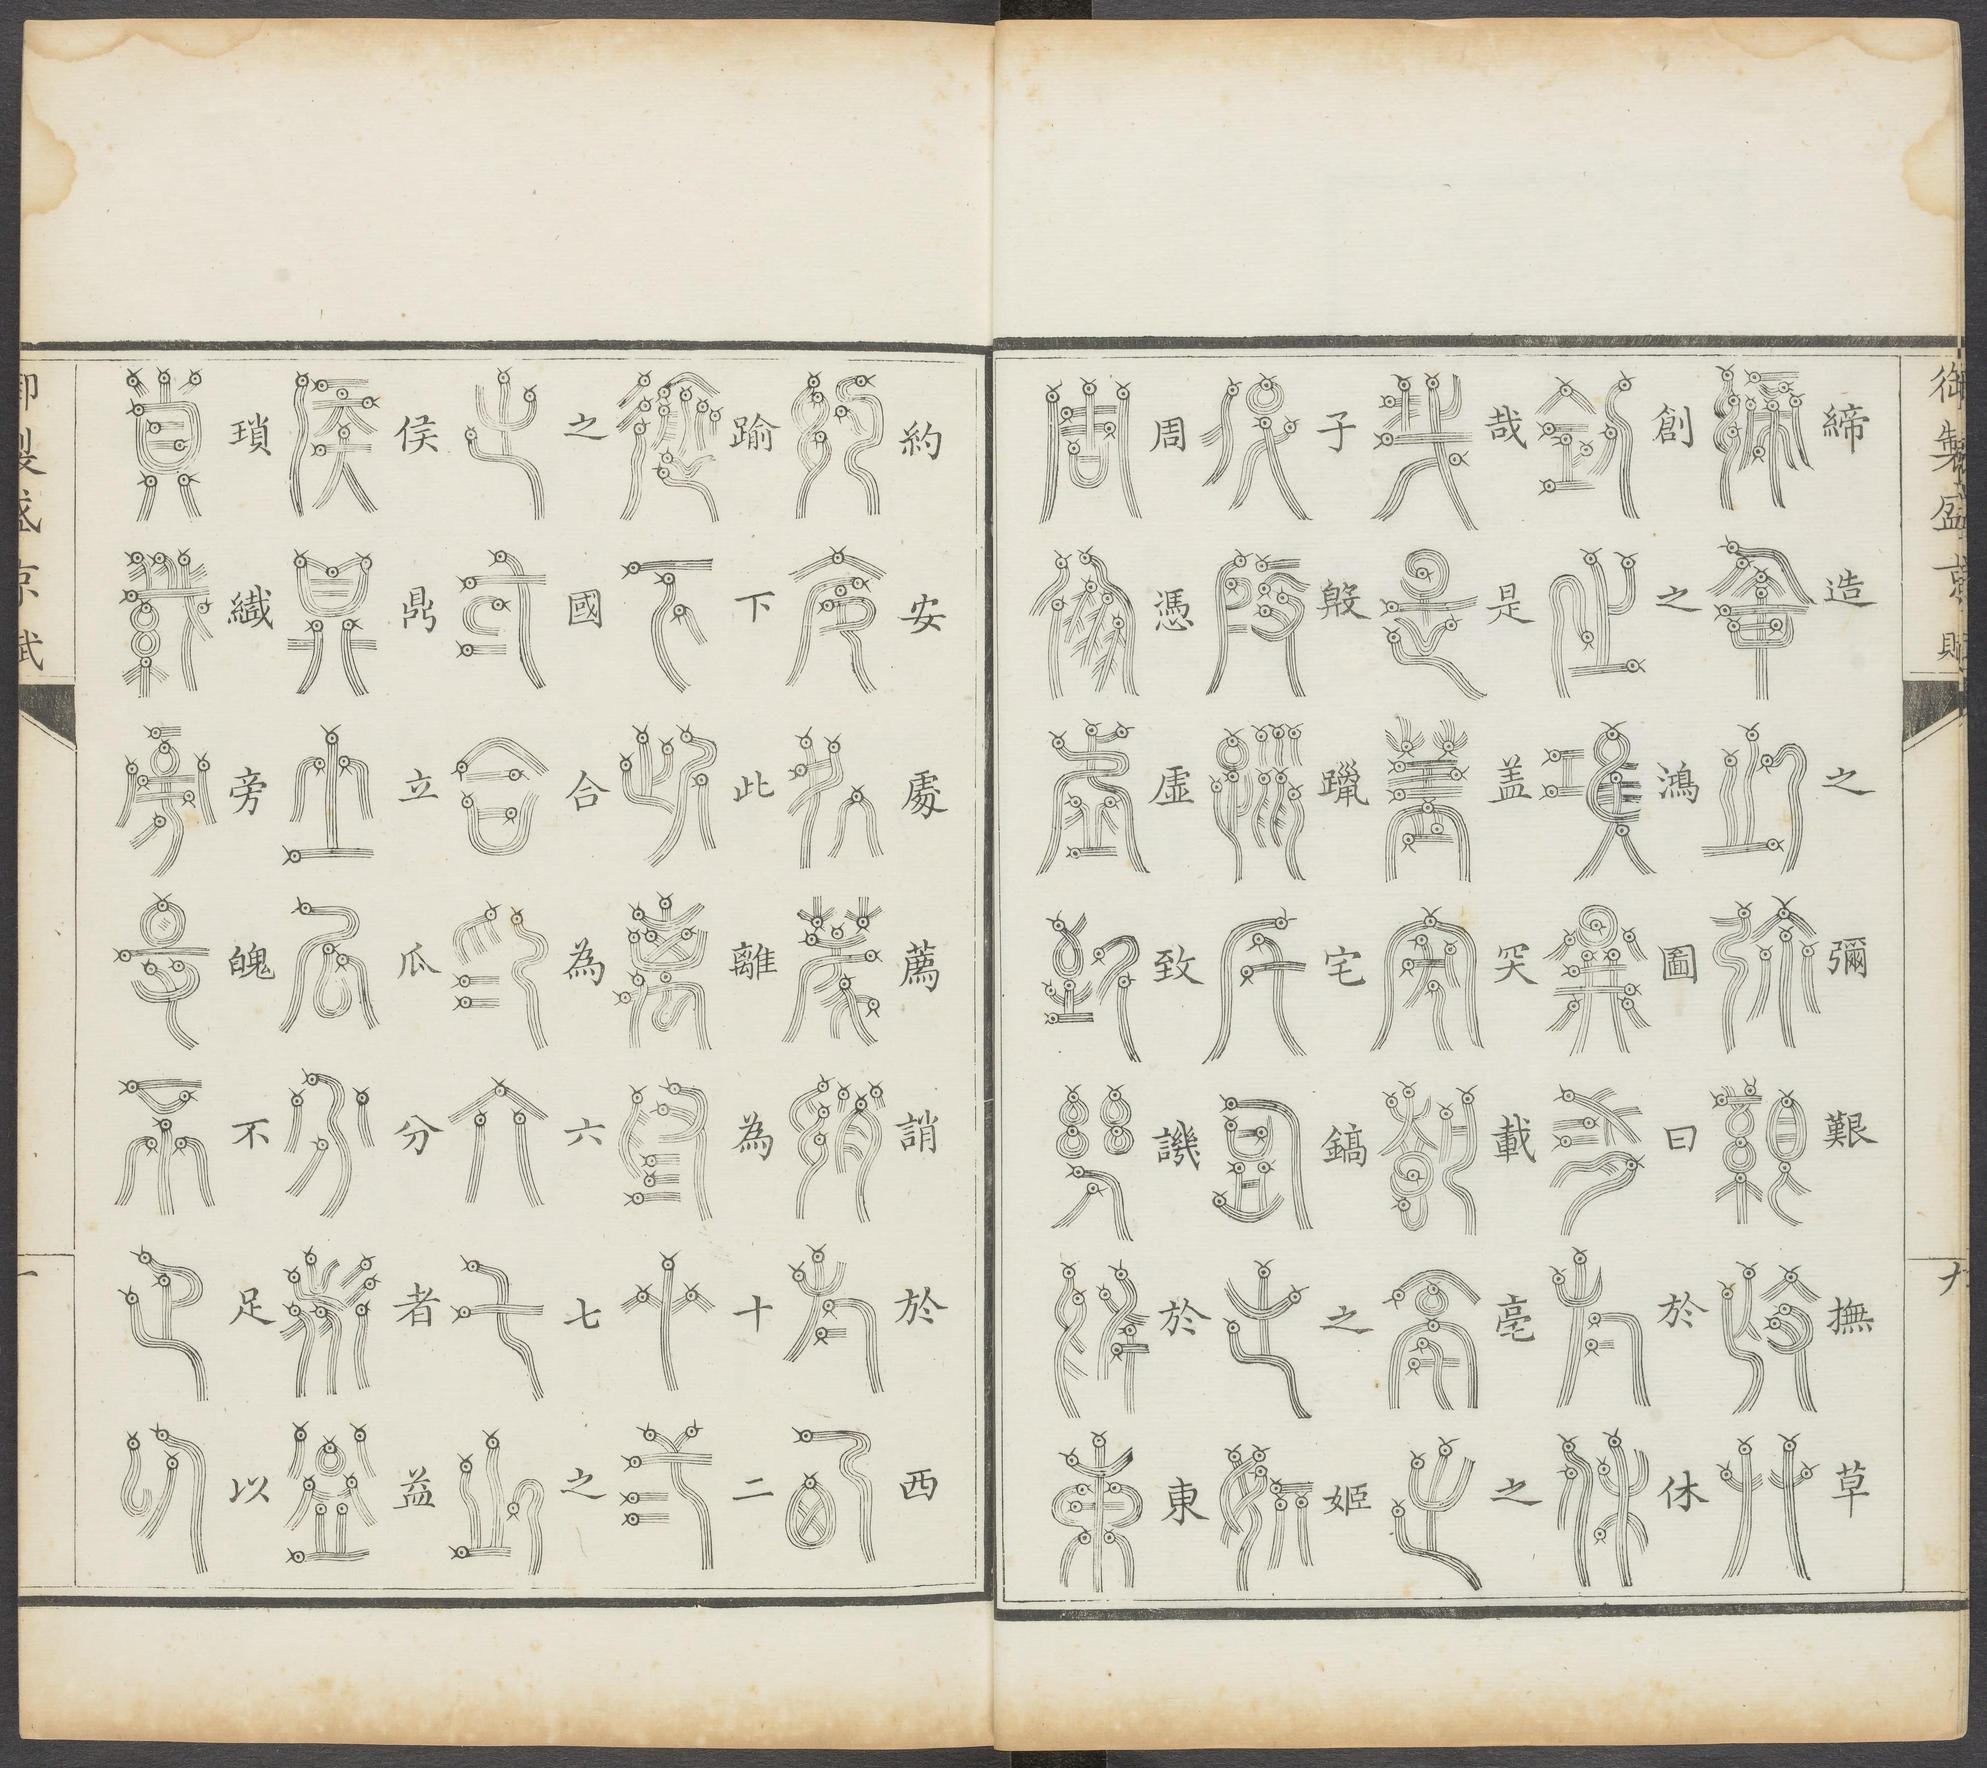 御製盛京賦
九
締造之彌艱撫草
創之鴻圖曰於休
哉是盖突載亳之
子殷躐宅鎬之姬
周憑虛致譏於東
約安處薦誚於西
踰下此離為十二
之國合為六七之
侯鼎立瓜分者益
瑣纎旁魄不足以
御製盛京賦